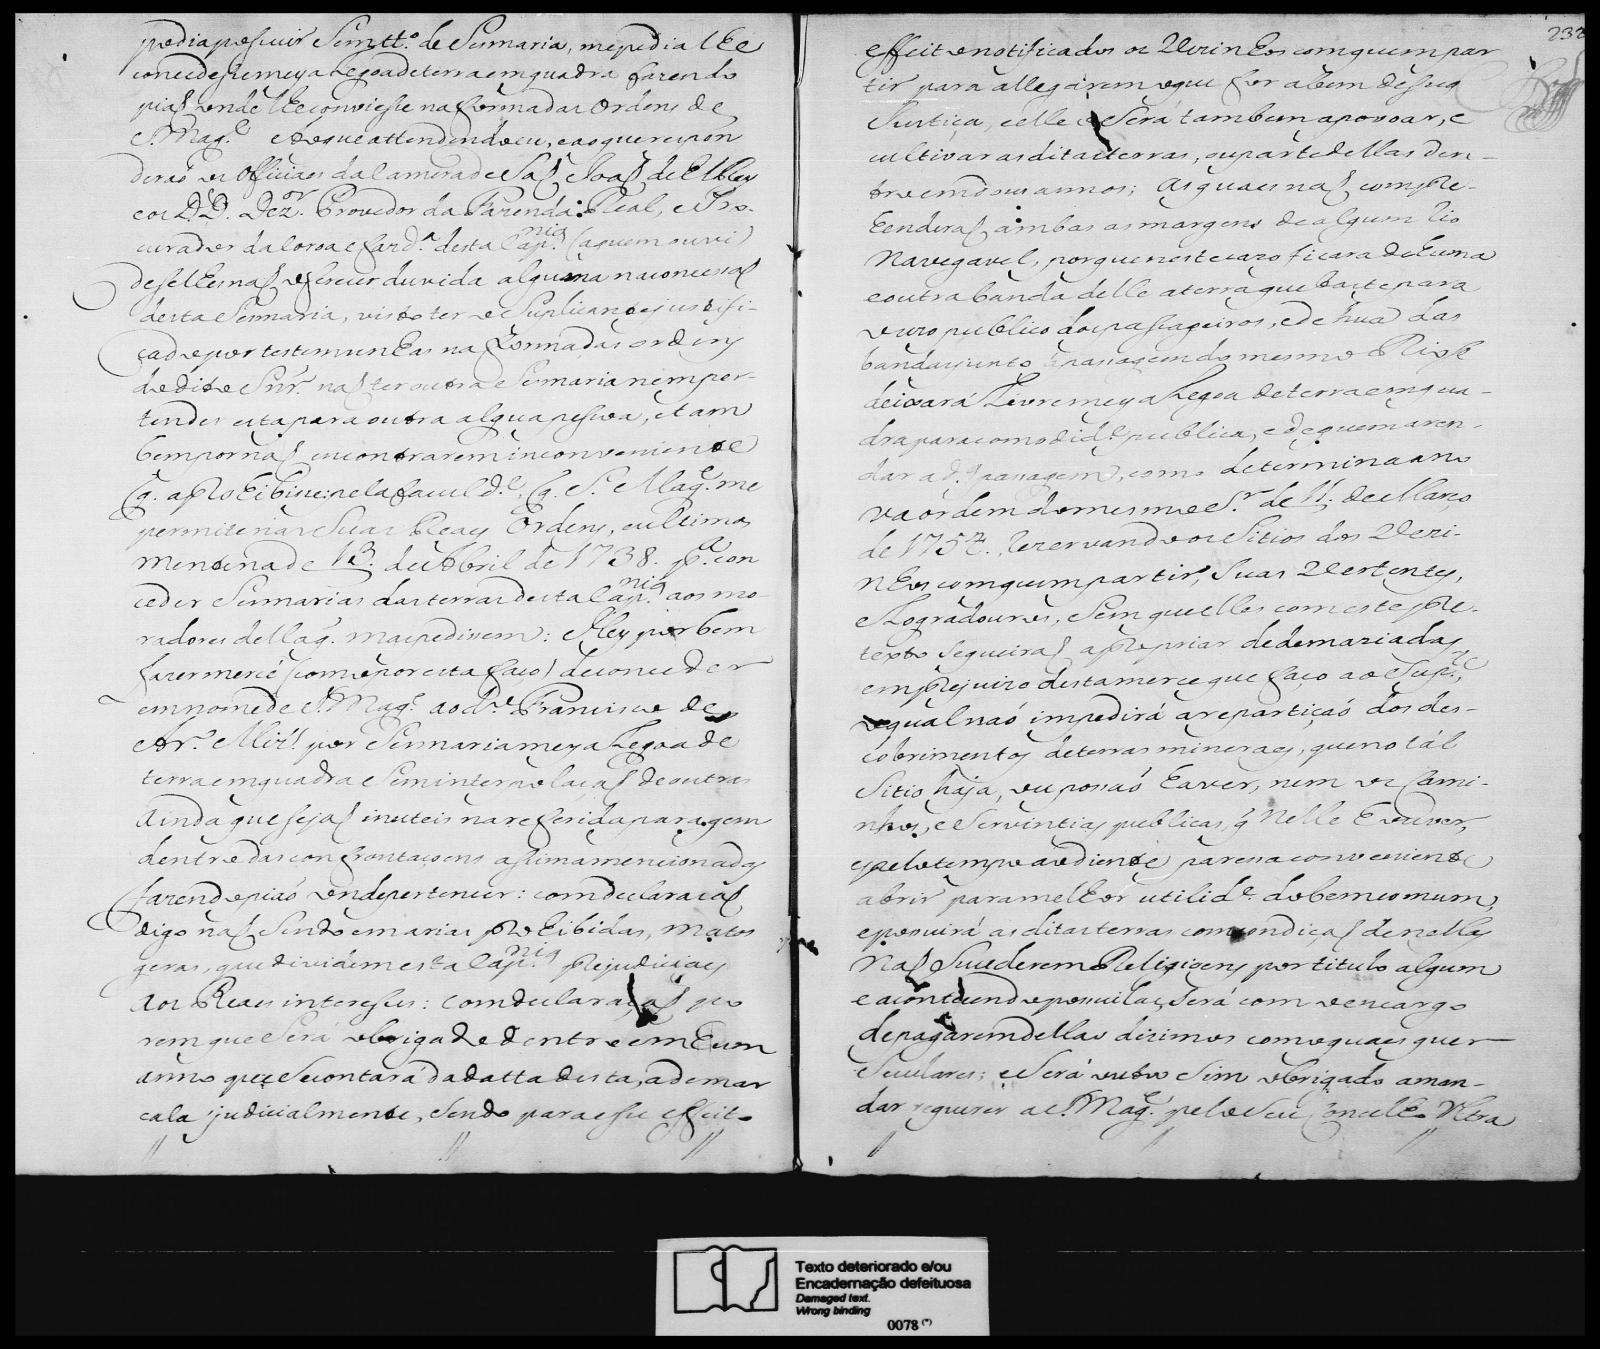 podia possuir sem tt.º de Sesmaria, me pedia lhe
concedese meya Legoa de terra em quadra fazendo
piaõ onde lhe conviesse na forma das Ordens de
S. Mag.e e ao que attendendo eu, e ao que respon
deraõ os Officiaes da Camera de Saõ Joaõ de El Rey
e os D.D. Dez.or Provedor da Fazenda Real, e Pro-
curador da Coroa e Faz.da desta Cap.nia (a quem ouvi)
de selhes naõ oferecer duvida alguma na concessaõ
desta Sesmaria, visto ter o Suplicante justifi-
cado por testemunhas na forma das ordens
do dito Snr. naõ ter outra Sesmaria nem per-
tender esta para outra algua pessoa, e tam
bem por naõ encontrarem inconveniente
q. a prohibise: pela facul d.e, q. S. Mag.e me
permite nas Suas Reaes Ordens, e ultima
mente na de 13. de Abril de 1738. p.a con
ceder Sesmarias das terras desta Cap.nia aos mo-
radores della q. mas pedirem: Hey por bem
fazer mercê (como por esta faço) de conceder
em nome de S. Mag.e ao d.o Francisco de
Ar.o Miz. por Sesmaria meya Legoa de
terra em quadra sem interpolaçaõ de outras
ainda que sejaõ inuteis na referida paragem
dentro das confrontaçoens asima mencionadas
fazendo piaõ onde pertencer: com declaraçaõ
digo naõ sendo em arias prohibidas, matos
geraes, que dividem esta Cap.nia prejudiciaes
aos Reaes interesses: com declaraçaõ po
rem que será obrigado dentro em hum
anno que se contará da datta desta, a demar
cala judicialmente, sendo para esse effeito
232
effeito notificados os Vezinhos com quem par
tir para allegarem o que for a bem de sua
Justiça, e elle o Será tambem a povoar, e
cultivar as ditas terras, ou parte dellas den-
tro em dous annos; as quaes naõ compre-
henderaõ ambas as margens de algum rio
Navegavel, porque neste cazo ficara de huma
e outra banda delle a terra que baste para
o uzo publico dos passageiros, e de huã das
bandas junto a passagem do mesmo Rio se
deixará Livre meya Legoa de terra em qua-
dra para comodid.e publica, e de quem aren-
dar a d.a passagem, como determina a no
va ordem do mesmo S.r de 11. de Março
de 1754. rezervando os Sitios dos Vezi-
nhos com quem partir, suas Vertentes,
e Logradouros, sem que elles com este pre-
texto se queiraõ apropriar de demaziadas
em prejuizo desta merce que faço ao Sup.te,
o qual naõ impedirá a repartiçaõ dos des-
cobrimentos de terras mineraes, que no tál
Sitio haja, ou possaõ haver, nem os Cami-
nhos, e Serventias publicas, q̃ nelle houver,
e pelo tempo adiente pareca conveniente
abrir para melhor utilid.e do bem comum,
e possuirá as ditas terras com condiçaõ de nellas
Naõ Sucederem Religioens por titulo algum
e acontecendo possuilas, Será com o encargo
de pagarem dellas dizimos como quaes quer
Seculares; e Será outro Sim obrigado a man-
dar requerer a S. Mag.e pelo Seu Conselho Ultra
Texto deteriorado e/ou
Encadernação defeituosa
Damaged text.
Wrong binding
0078 (*)